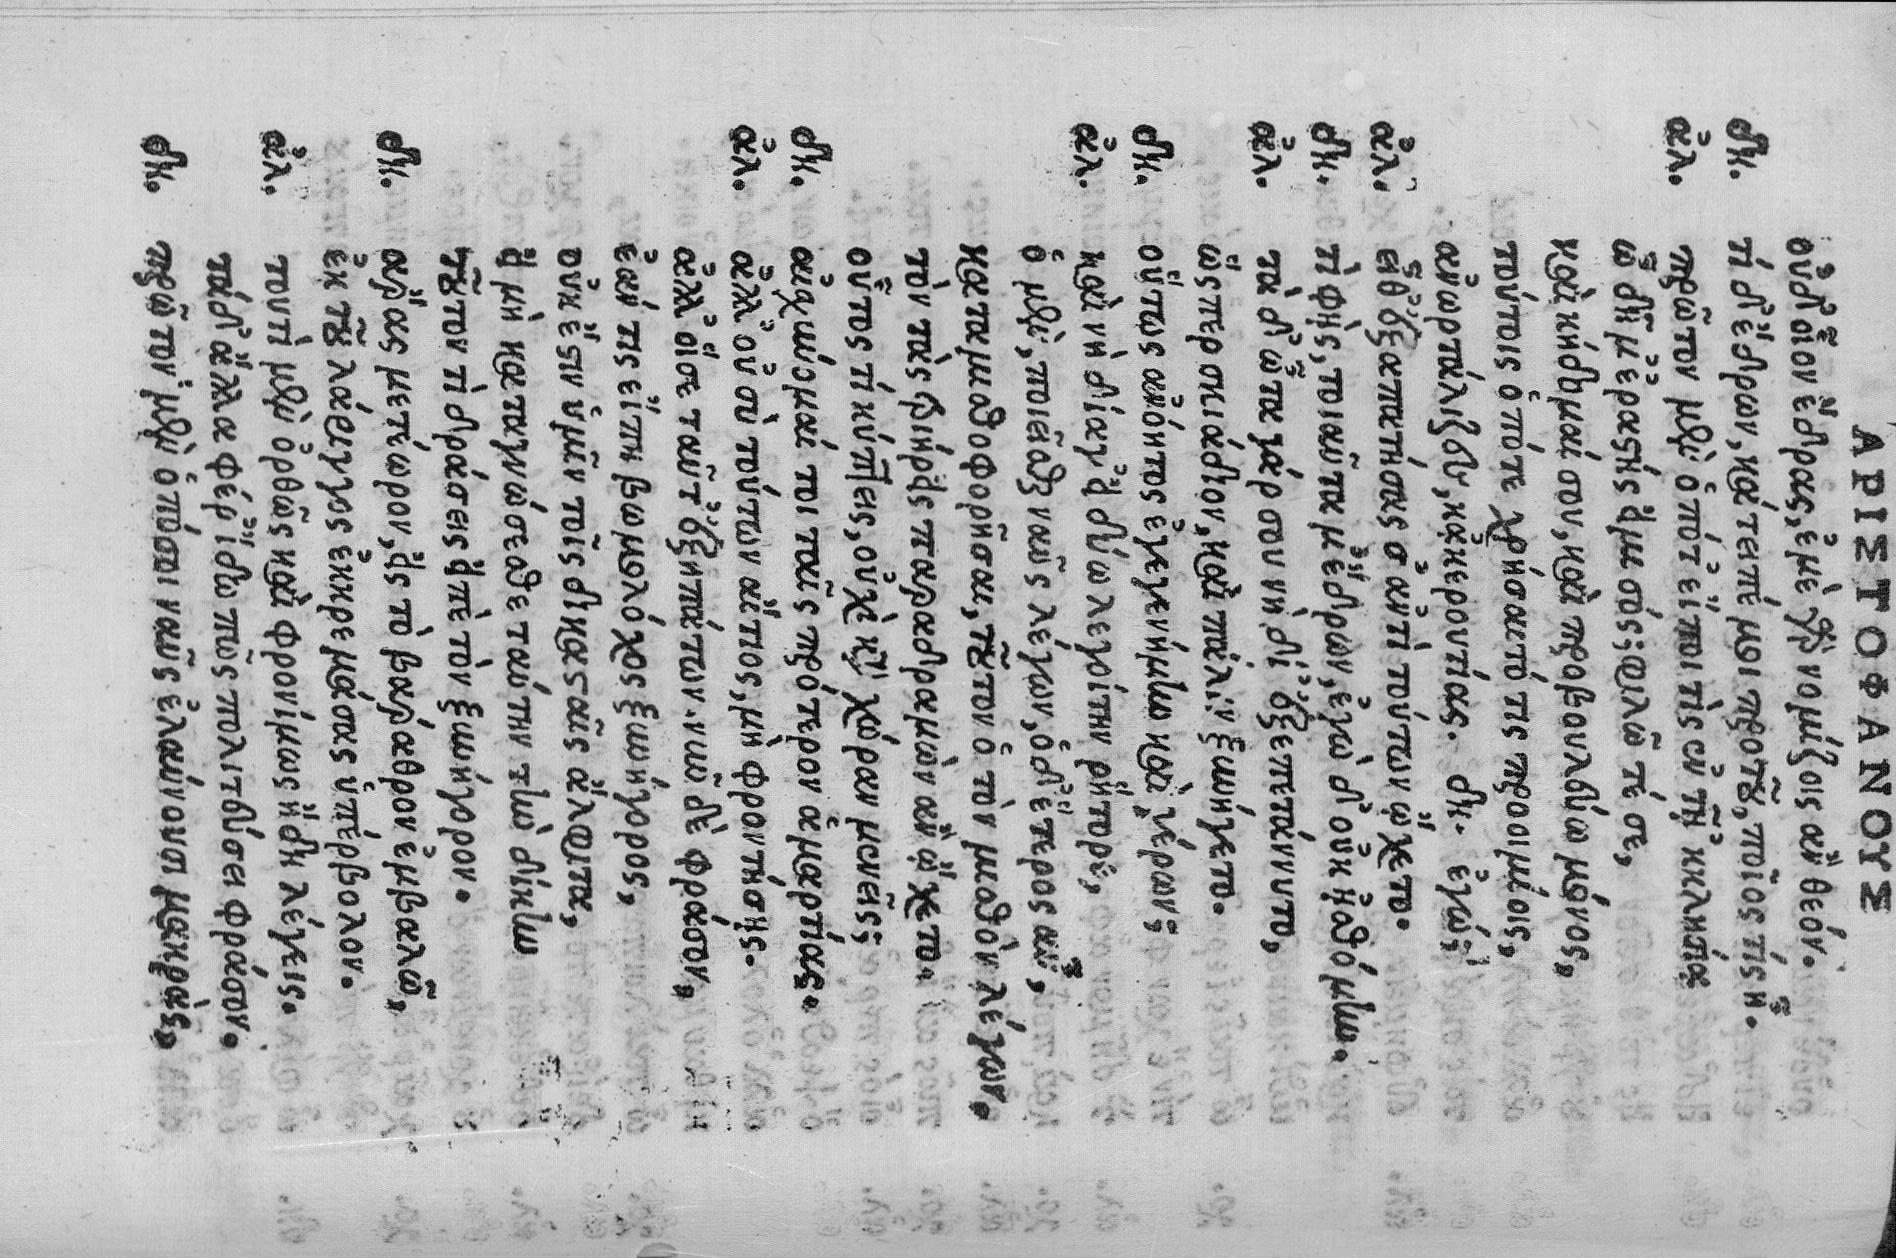 ΑΡΙΣΤΟΦΑΝΟΥΣ
οὐδ' οἷον ἔδρας, ἐμὲ γὰρ νομίζοις ἂν θεόν.
δη. τί δ' ἔδρων, κάτειπέ μοι προτοῦ, ποῖος τίς ἦ.
ἀλ. πρῶτον μὲν ὁπότ' εἴποι τις ἐν τῇ κκλησίᾳ
ὦ δῆμ' ἐραστής εἰμι σός, φιλῶ τέ σε,
καὶ κήδομαί σου, καὶ προβουλεύω μόνος,
τούτοις ὁπότε χρήσαιτό τις προοιμίοις,
ἀνωρτάλιζες, κἀκερουτίας. δη. ἐγώ;
ἀλ. εἶθ' ἐξαπατήσας σ' ἀντὶ τούτων ᾤχετο.
δη. τί φής, τοιαῦτά μ' ἔδρων, ἐγὼ δ' οὐκ ᾐσθόμην.
ἀλ. τὰ δ' ὦτα γάρ σου νὴ δί' ἐξεπετάννυτο,
ὥσπερ σκιάδιον, καὶ πάλιν ξυνήγετο.
δη. οὕτως ἀνόητος ἐγεγενήμην καὶ γέρων;
ἀλ. καὶ νὴ δί' αἴ γε δύω λεγοίτην ῥήτορε,
ὁ μὲν, ποιεῖσθαι ναῦς λέγων, ὁ δ' ἕτερος αὖ,
καταμισθοφορῆσαι, τοῦτον ὁ τὸν μισθὸν λέγων,
τὸν τὰς τριήρεις παραδραμὼν ἂν ᾤχετο.
οὗτος τί κύπτεις, οὐχὶ κατὰ χώραν μενεῖς;
δη. αἰσχύνομαί τοι ταῖς πρότερον ἁμαρτίαις.
ἀλ. ἀλλ' οὐ σὺ τούτων αἴτιος, μὴ φροντίσῃς.
ἀλλ' οἵ σε ταῦτ' ἐξηπάτων. νῦν δὲ φράσον,
ἐάν τις εἴπῃ βωμολόχος ξυνήγορος,
οὐκ ἔστιν ὑμῖν τοῖς δικασταῖς ἄλφιτα,
εἰ μὴ καταγνώσεσθε ταύτην τὴν δίκην
τοῦτον τί δράσεις εἰπὲ τὸν ξυνήγορον.
δη. ἄρας μετέωρον, εἰς τὸ βάραθρον ἐμβαλῶ,
ἐκ τοῦ λάρυγγος ἐκκρεμάσας ὑπέρβολον.
ἀλ. τουτὶ μὲν ὀρθῶς καὶ φρονίμως ἤδη λέγεις.
τὰ δ' ἄλλα φέρ' ἴδω πῶς πολιτεύσει φράσον.
δη. πρῶτον μὲν ὁπόσοι ναῦς ἐλαύνουσι μακρὰς,